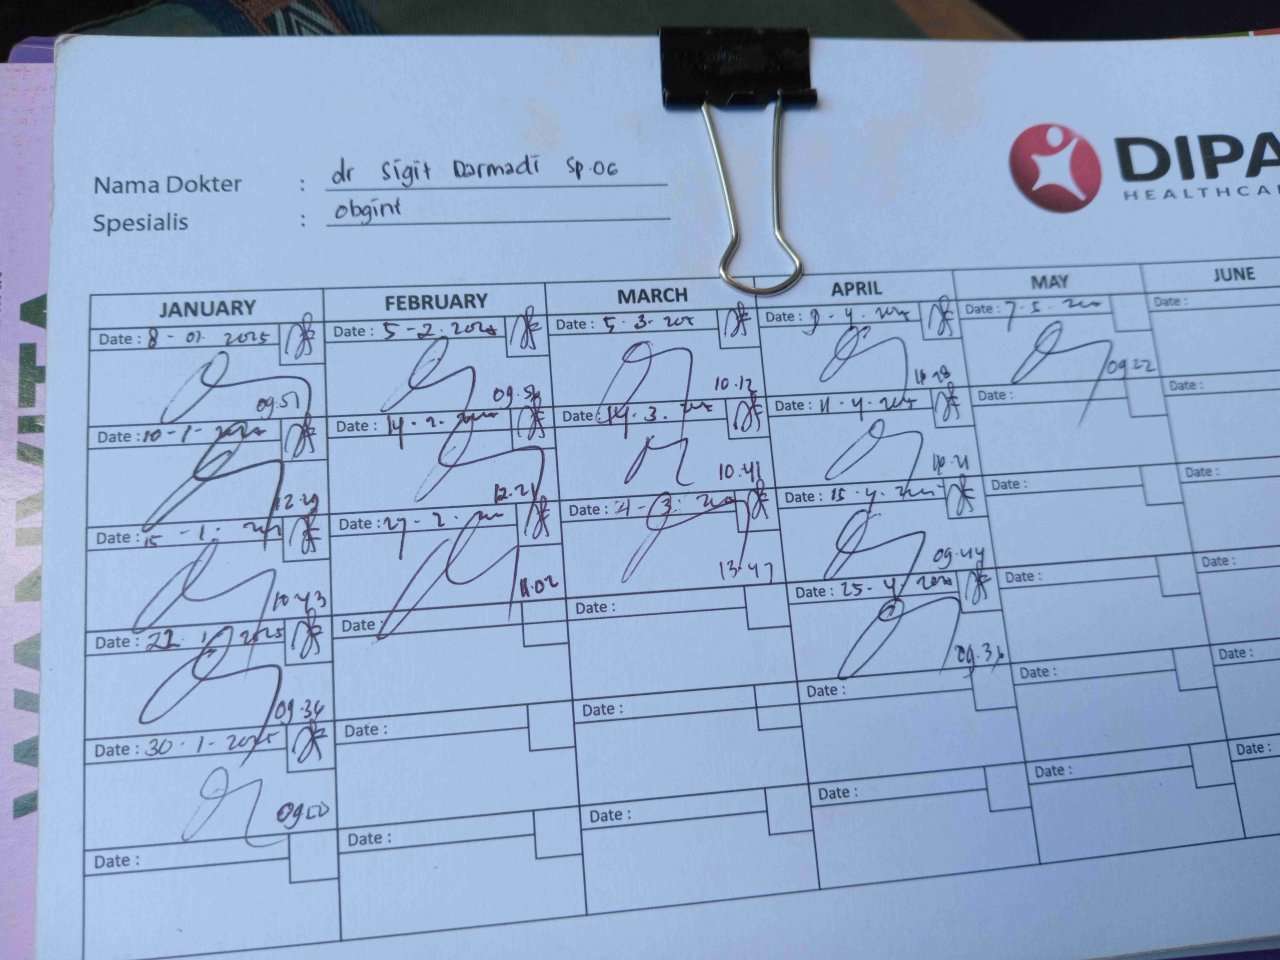 Nama Dokter : dr Sigit Darmadi Sp.OG
Spesialis : obgint
DIPA
HEALTHCA
JANUARY FEBRUARY MARCH APRIL MAY JUNE
Date : 8 - 01 2025 Date : 5 - 2. 2025 Date : 5. 3. Date : 9 - 4. Date : 7. 5. Date :
09.51 09.54 10.12 09.22
Date : 10 - 1 - Date : 14 - 2. Date : 14 - 3. Date : 11 - 4. Date : Date :
12.29 12.21 10.41
Date : 15 - 1. Date : 27 - 2. Date : Date : 15. 4. Date : Date :
10.43 11.02 13.47 09.44
Date : 22. 1 2025 Date : Date : Date : 25 - 4. Date : Date :
09.36 09.36
Date : 30 - 1 - 2025 Date : Date : Date : Date : Date :
09.50
Date : Date : Date : Date : Date : Date :